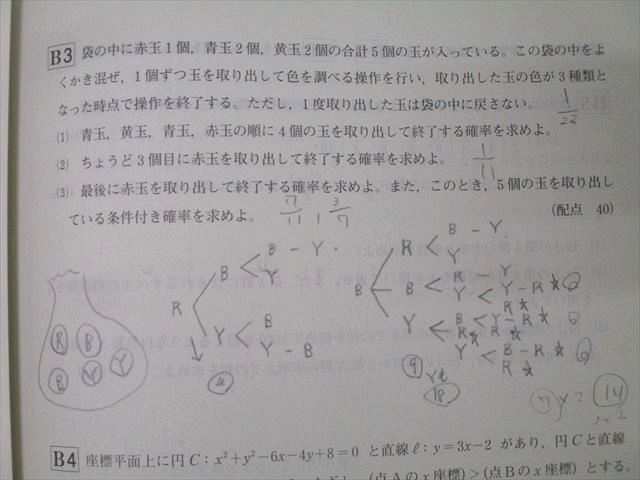 B3 袋の中に赤玉1個，青玉2個，黄玉2個の合計5個の玉が入っている。この袋の中をよ
くかき混ぜ，1個ずつ玉を取り出して色を調べる操作を行い，取り出した玉の色が3種類と
なった時点で操作を終了する。ただし，1度取り出した玉は袋の中に戻さない。 1/22
(1) 青玉，黄玉，青玉，赤玉の順に4個の玉を取り出して終了する確率を求めよ。
(2) ちょうど3個目に赤玉を取り出して終了する確率を求めよ。
(3) 最後に赤玉を取り出して終了する確率を求めよ。また，このとき，5個の玉を取り出し
ている条件付き確率を求めよ。 7/11 , 3/7 (配点 40)
R
B
B - Y
Y
Y
B
Y - B
4
B
R
B - Y
Y
B
Y
Y - R
9
18
R B
B Y Y
14
B4 座標平面上に円C：x²+y²−6x−4y+8=0 と直線ℓ：y=3x−2 があり，円Cと直線
(点Aのx座標)>(点Bのx座標) とする。